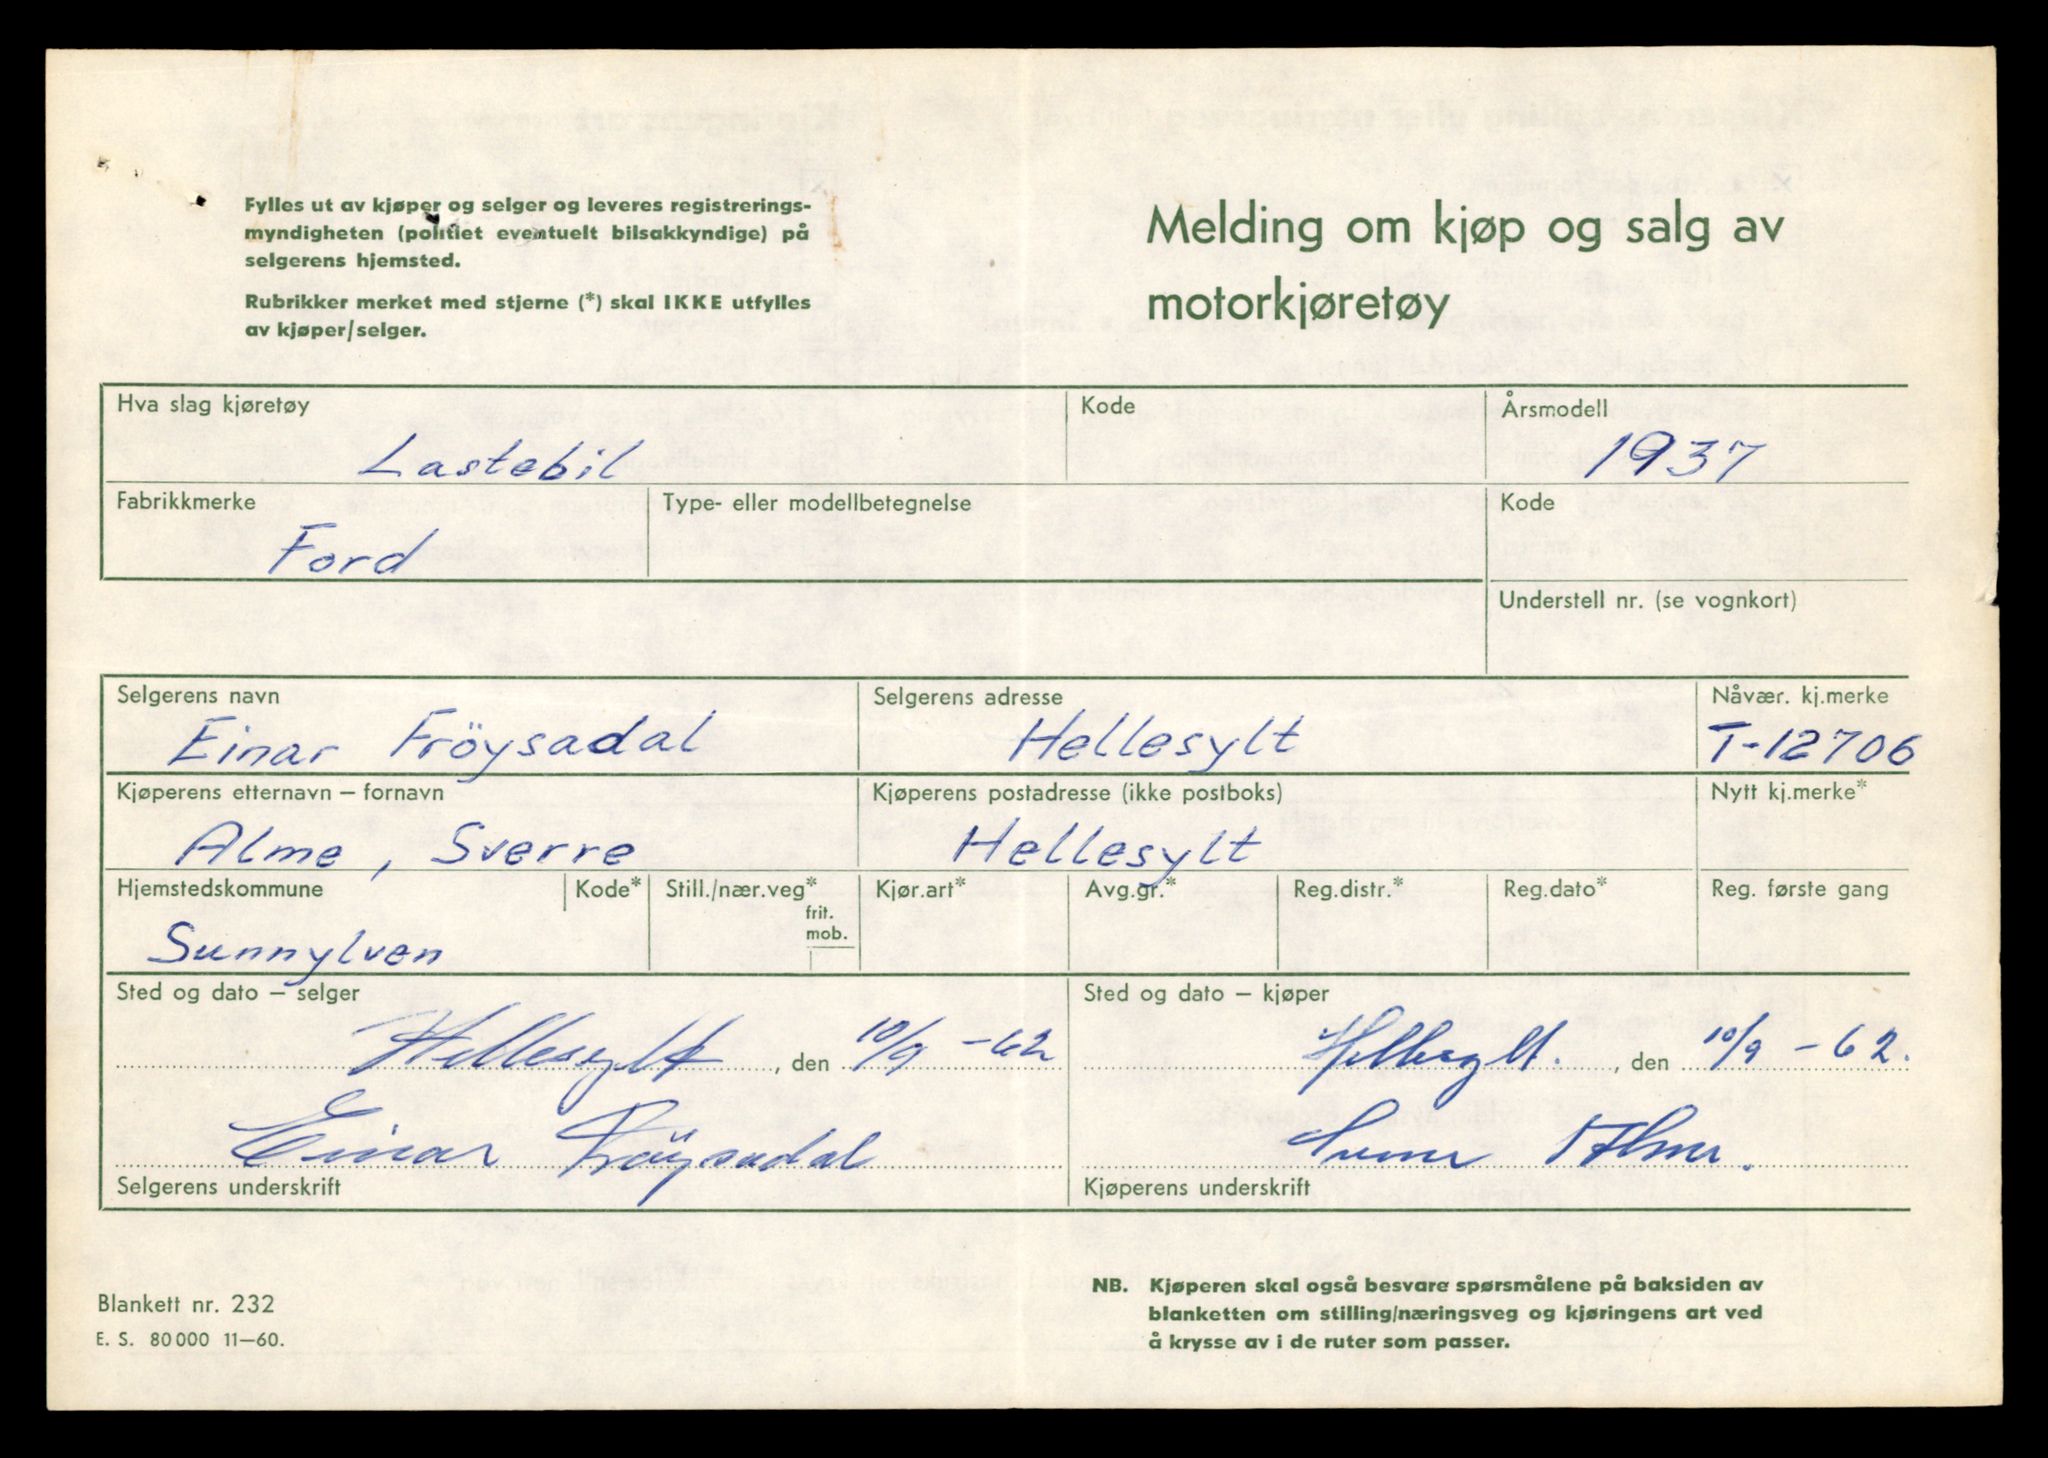 Fylles ut av kjøper og selger og leveres registrerings-
myndigheten (politiet eventuelt bilsakkyndige) på
selgerens hjemsted.
Rubrikker merket med stjerne (*) skal IKKE utfylles
av kjøper/selger.
Melding om kjøp og salg av
motorkjøretøy
Hva slag kjøretøy
Lastebil
Kode
Årsmodell
1937
Fabrikkmerke
Ford
Type- eller modellbetegnelse
Kode
Understell nr. (se vognkort)
Selgerens navn
Einar Fröysadal
Selgerens adresse
Hellesylt
Nåvær. kj.merke
T-12706
Kjøperens etternavn – fornavn
Alme, Sverre
Kjøperens postadresse (ikke postboks)
Hellesylt
Nytt kj.merke*
Hjemstedskommune
Sunnylven
Kode*
Still./nær.veg*
frit.
mob.
Kjør.art*
Avg.gr.*
Reg.distr.*
Reg.dato*
Reg. første gang
Sted og dato – selger
Hellesylt, den 10/9 -62
Einar Fröysadal
Selgerens underskrift
Sted og dato – kjøper
Hellesylt., den 10/9 - 62.
Sverre Alme.
Kjøperens underskrift
Blankett nr. 232
E. S. 80 000 11–60.
NB. Kjøperen skal også besvare spørsmålene på baksiden av
blanketten om stilling/næringsveg og kjøringens art ved
å krysse av i de ruter som passer.